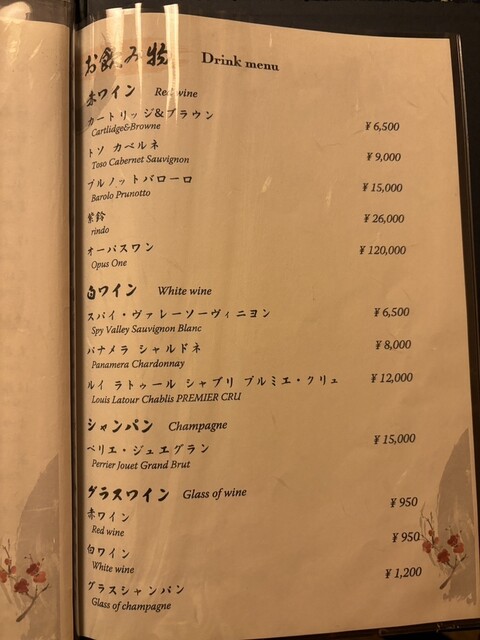 お飲み物 Drink menu
赤ワイン Red wine
カートリッジ&ブラウン
Cartlidge&Browne ¥6,500
トソ カベルネ
Toso Cabernet Sauvignon ¥9,000
プルノットバローロ
Barolo Prunotto ¥15,000
紫鈴
rindo ¥26,000
オーパスワン
Opus One ¥120,000
白ワイン White wine
スパイ・ヴァレーソーヴィニヨン ¥6,500
Spy Valley Sauvignon Blanc
パナメラ シャルドネ ¥8,000
Panamera Chardonnay
ルイ ラトゥール シャブリ プルミエ・クリュ ¥12,000
Louis Latour Chablis PREMIER CRU
シャンパン Champagne
ペリエ・ジュエグラン ¥15,000
Perrier Jouet Grand Brut
グラスワイン Glass of wine
赤ワイン ¥950
Red wine
白ワイン ¥950
White wine
グラスシャンパン ¥1,200
Glass of champagne